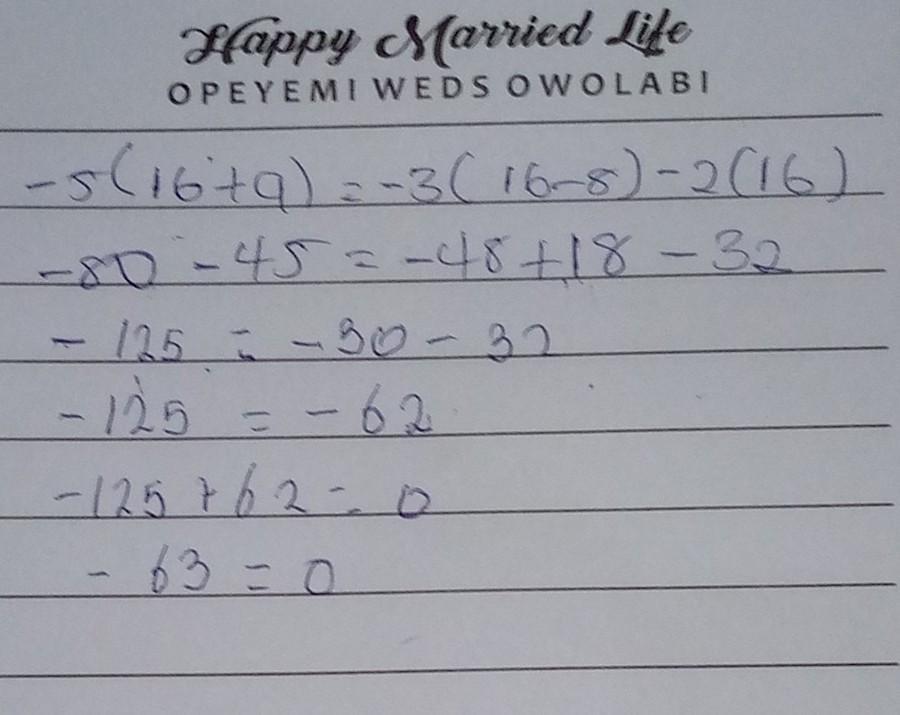 Happy Married Life
OPEYEMI WEDS OWOLABI
-5(16+9) = -3(16-8)-2(16)
-80 -45 = -48+18 - 32
- 125 = -30 - 32
-125 = - 62
-125 + 62 = 0
- 63 = 0